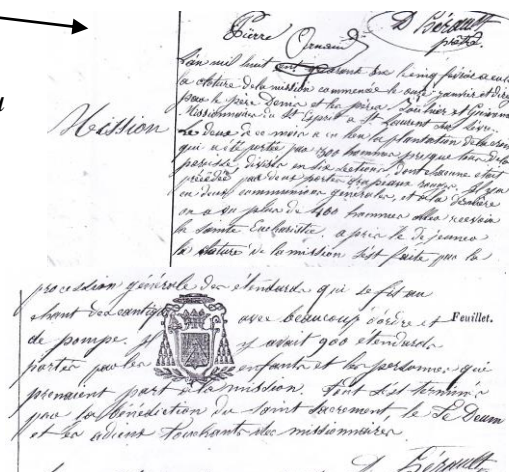 Pierre Arnaud D Hérault
prêtre.
Mission
L'an mil huit cent quarante six le cinq février a eu lieu
la clôture de la mission commencée le onze janvier et dirigée
par le père Denis et les pères Loishier et Guinement
Missionnaires du St Esprit à St Laurent sur Sèvre.
Le deux de ce mois a eu lieu la plantation de la croix
qui a été portée par 300 hommes presque tous de la
paroisse divisés en six sections dont chacune était
précédée par deux portes drapeaux rouges. Il y a
eu deux communions générales, et à la dernière
on a vu plus de 400 hommes aller recevoir
la sainte Eucharistie, après le déjeuner
la clôture de la mission s'est faite par la
procession générale des étendards qui se fit au
chant des cantiques avec beaucoup d'ordre et Feuillet.
de pompe. Il y avait 900 étendards
portés par les enfants et les personnes qui
prenaient part à la mission. Tout s'est terminé
par la bénédiction du Saint Sacrement, le Te Deum
et les adieux touchants des missionnaires
D Hérault